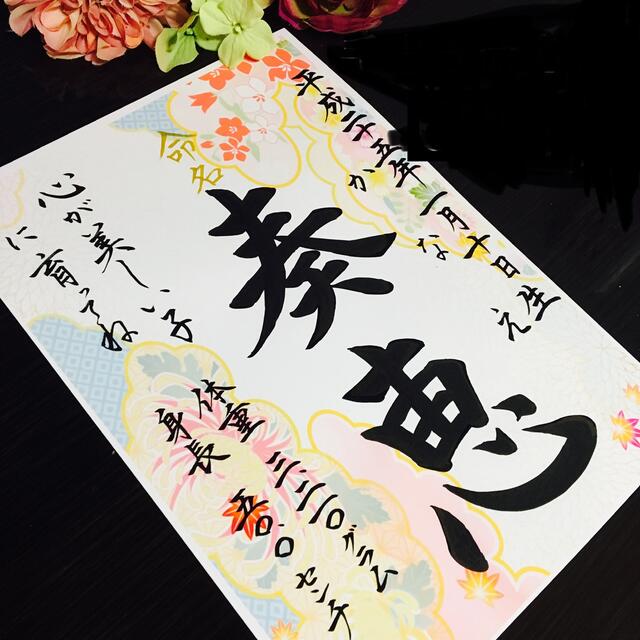 平成二十五年一月十日生
かなえ
命名
奏恵
心が美しい子
に育ってね
体重三、二二〇グラム
身長五〇、〇センチ